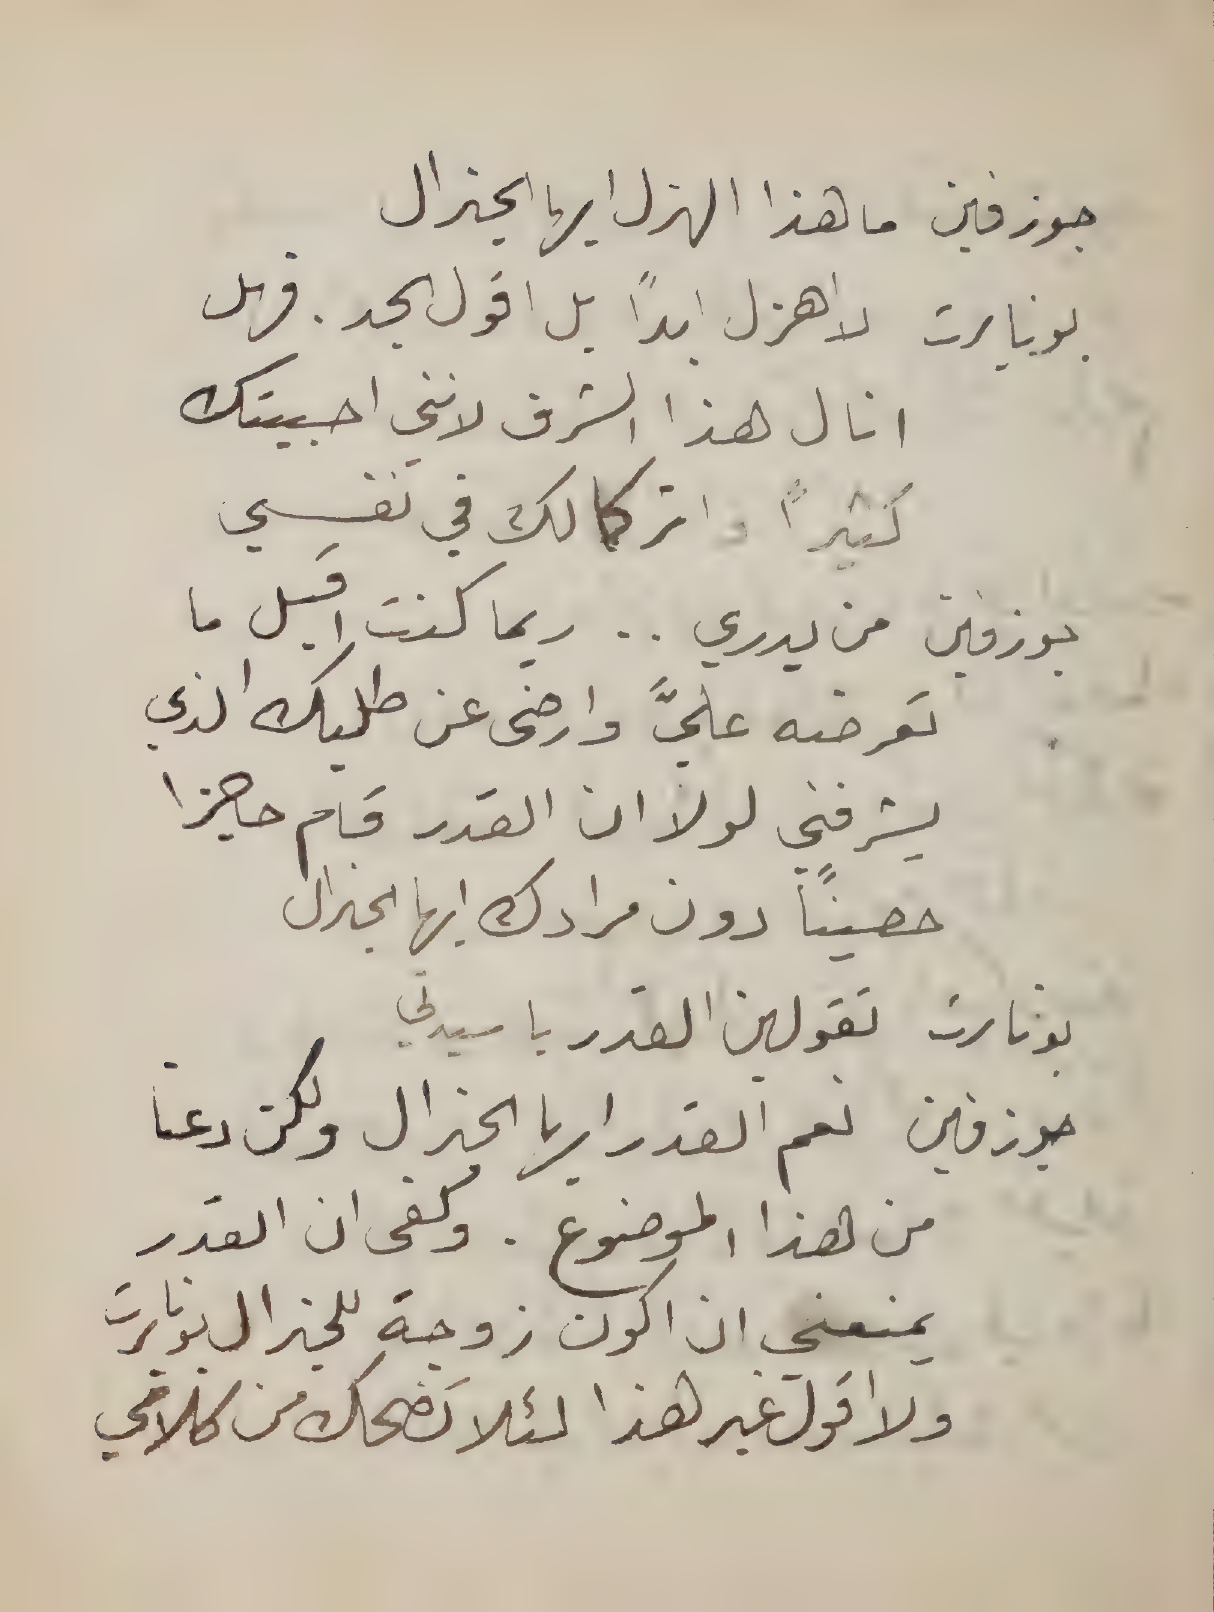 جوزفين ما هذا الهزل ايها الجنرال
بونابرت لا اهزل ابداً بل اقول الجد . فهل
انال هذا الشرف لانني احببتك
كثيراً لك في نفسي
جوزفين من يدري .. ربما كنت اقبل ما
تعرضه عليَّ وارضى عن طلبك الذي
يشرفني لولا ان القدر قام حاجزا
حصيناً دون مرادك ايها الجنرال
بونابرت تقولين القدر يا سيدتي
جوزفين نعم القدر ايها الجنرال ولكن دعنا
من هذا الموضوع . وكفى ان القدر
يمنعني ان اكون زوجة للجنرال بونابرت
ولا اقول غير هذا لئلا تضحك من كلامي